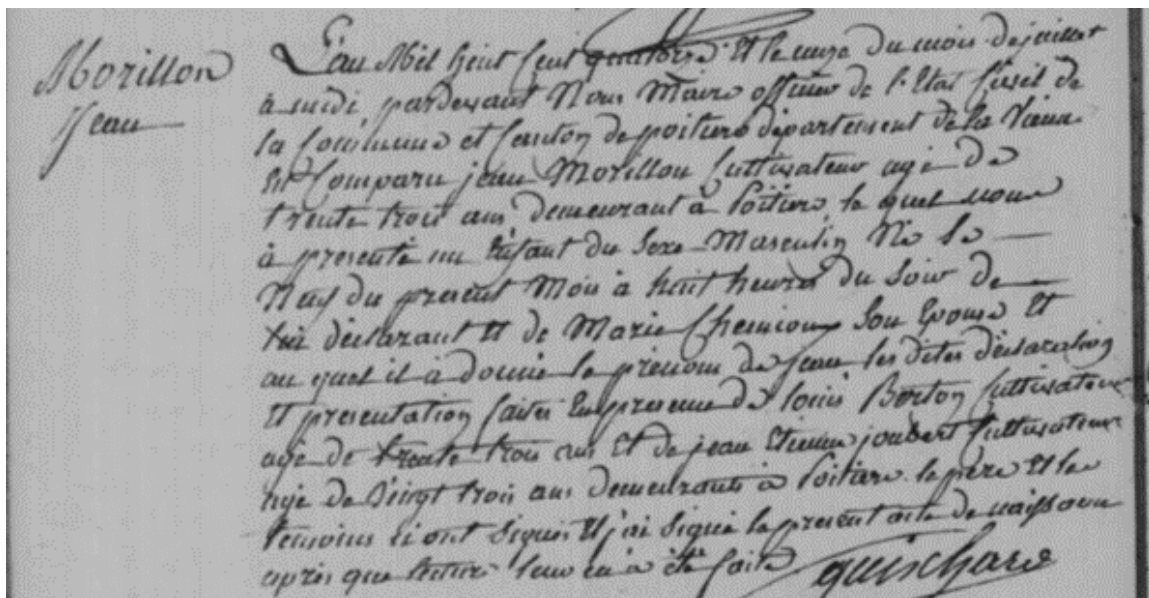 Morillon
Jean
L'an Mil huit Cent quatorze Et le onze du mois de juillet
à midi, pardevant Nous Maire officier de l'Etat Civil de
la Commune et Canton de poitiers département de la Vienne
Est Comparu jean Morillon Cultivateur agé de
trente trois ans demeurant à Poitiers le quel nous
à presenté un Enfant du Sexe Masculin Né le
Neuf du present Mois à huit heures du Soir de
lui déclarant Et de Marie Son Epouse Et
au quel il à donné le prenom de Jean les dites déclaration
Et presentation faites En presence de louis Berton Cultivateur
agé de trente trois ans Et de jean Etienne joubert Cultivateur
agé de Vingt trois ans demeurants à Poitiers le père Et les
temoins ont Signé Et j'ai Signé le present acte de naissance
après que lecture leur en à été faite